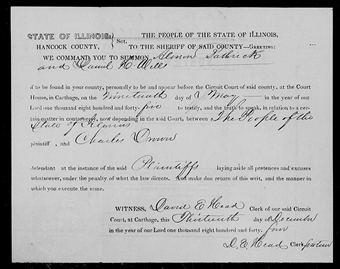 STATE OF ILLINOIS,
HANCOCK COUNTY, } Sct.
THE PEOPLE OF THE STATE OF ILLINOIS,
TO THE SHERIFF OF SAID COUNTY—GREETING:
WE COMMAND YOU TO SUMMON Almon
and Daniel H. Wells
if to be found in your county, personally to be and appear before the Circuit Court of said county, at the Court
House, in Carthage, on the Nineteenth day of May in the year of our
Lord one thousand eight hundred and forty-five to testify, and the truth to speak, in relation to a cer-
tain matter in controversy, now depending in the said Court, between The People of the
State of Illinois
plaintiff , and Charles
defendant at the instance of the said Plaintiffs laying aside all pretences and excuses
whatsoever, under the penalty of what the law directs. And make due return of this writ, and the manner in which
you execute the same.
WITNESS, David E Head Clerk of our said Circuit
Court, at Carthage, this Thirteenth day of December
in the year of our Lord one thousand eight hundred and forty- four
D. E. Head Clerk